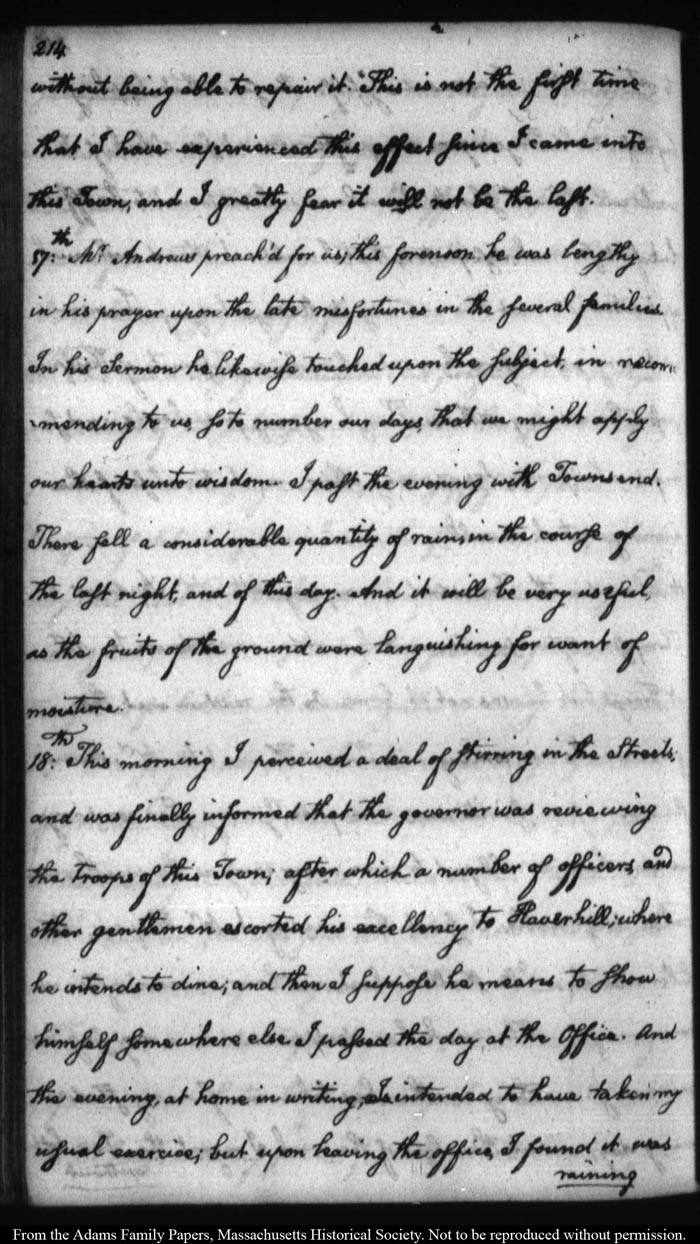 214
without being able to repair it. This is not the first time
that I have experienced this effect since I came into
this Town, and I greatly fear it will not be the last.
17:th Mr. Andrews preach'd for us; this forenoon he was lengthy
in his prayer upon the late misfortunes in the several families.
In his Sermon he likewise touched upon the subject, in recom
-mending to us, so to number our days, that we might apply
our hearts unto wisdom. I past the evening with Townsend.
There fell a considerable quantity of rain, in the course of
the last night, and of this day. And it will be very useful,
as the fruits of the ground were languishing for want of
moisture.
18:th This morning I perceived a deal of stirring in the Streets,
and was finally informed that the governor was reviewing
the troops of this Town; after which a number of officers and
other gentlemen escorted his excellency to Haverhill; where
he intends to dine; and then I suppose he means to show
himself somewhere else I passed the day at the Office. And
the evening, at home in writing, I intended to have taken my
usual exercice; but upon leaving the office, I found it was
raining
From the Adams Family Papers, Massachusetts Historical Society. Not to be reproduced without permission.